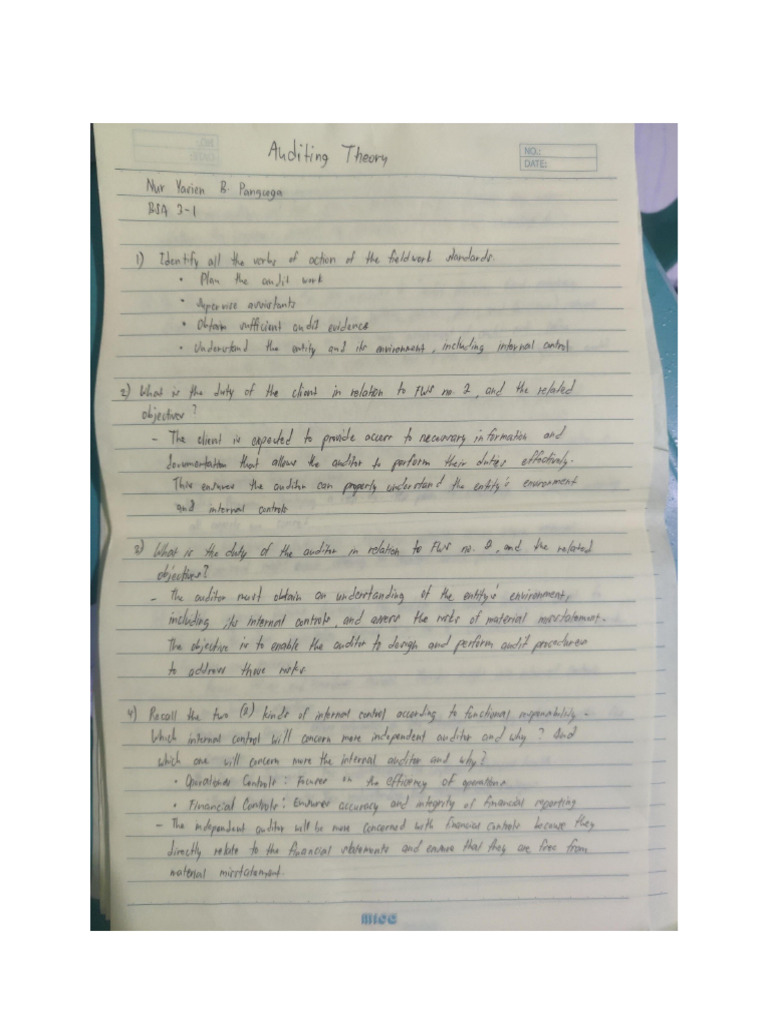 Auditing Theory
NO.:
DATE:
Nur Yarien B. Pangcoga
BSA 3-1
1) Identify all the verbs of action of the fieldwork standards.
• Plan the audit work
• Supervise assistants
• Obtain sufficient audit evidence
• Understand the entity and its environment, including internal control
2) What is the duty of the client in relation to FWS no. 2, and the related
objectives?
- The client is expected to provide access to necessary information and
documentation that allows the auditor to perform their duties effectively.
This ensures the auditor can properly understand the entity's environment
and internal controls
3) What is the duty of the auditor in relation to FWS no. 2, and the related
objectives?
- The auditor must obtain an understanding of the entity's environment,
including its internal controls, and assess the risks of material misstatement.
The objective is to enable the auditor to design and perform audit procedures
to address those risks.
4) Recall the two (2) kinds of internal control according to functional responsibility.
Which internal control will concern more independent auditor and why? And
which one will concern more the internal auditor and why?
• Operational Controls: Focuses on the efficiency of operations
• Financial Controls: Ensures accuracy and integrity of financial reporting
- The independent auditor will be more concerned with financial controls because they
directly relate to the financial statements and ensure that they are free from
material misstatement.